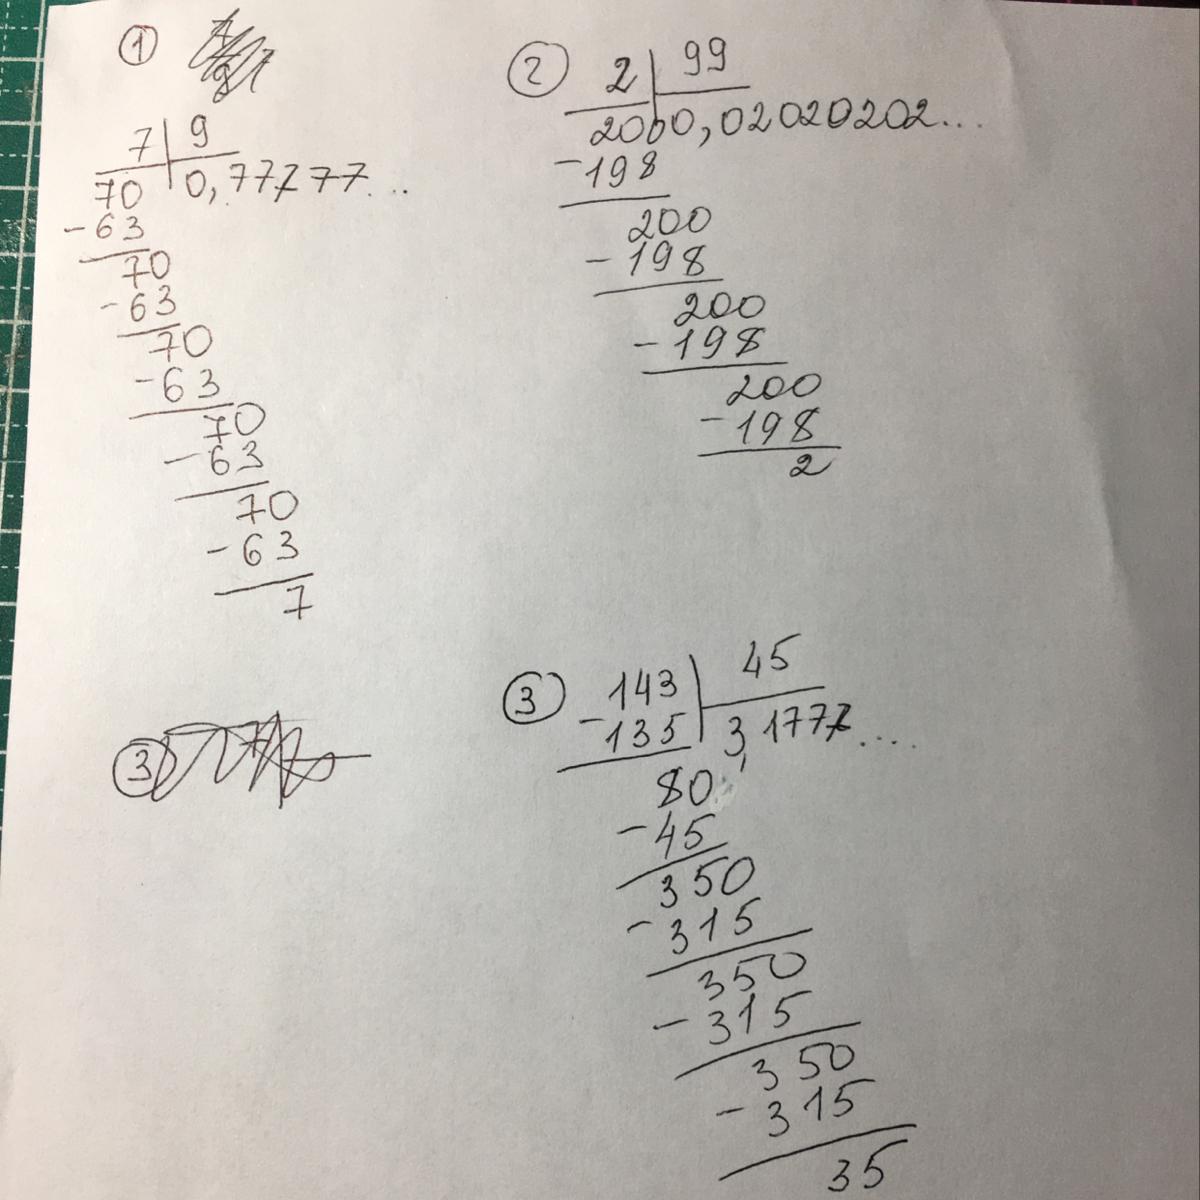 ①
7 | 9
70 | 0,77777...
-63
70
-63
70
-63
70
-63
70
-63
7
② 2 | 99
200 | 0,02020202...
-198
200
-198
200
-198
200
-198
2
③
③ 143 | 45
-135 | 3,1777....
80
-45
350
-315
350
-315
350
-315
35